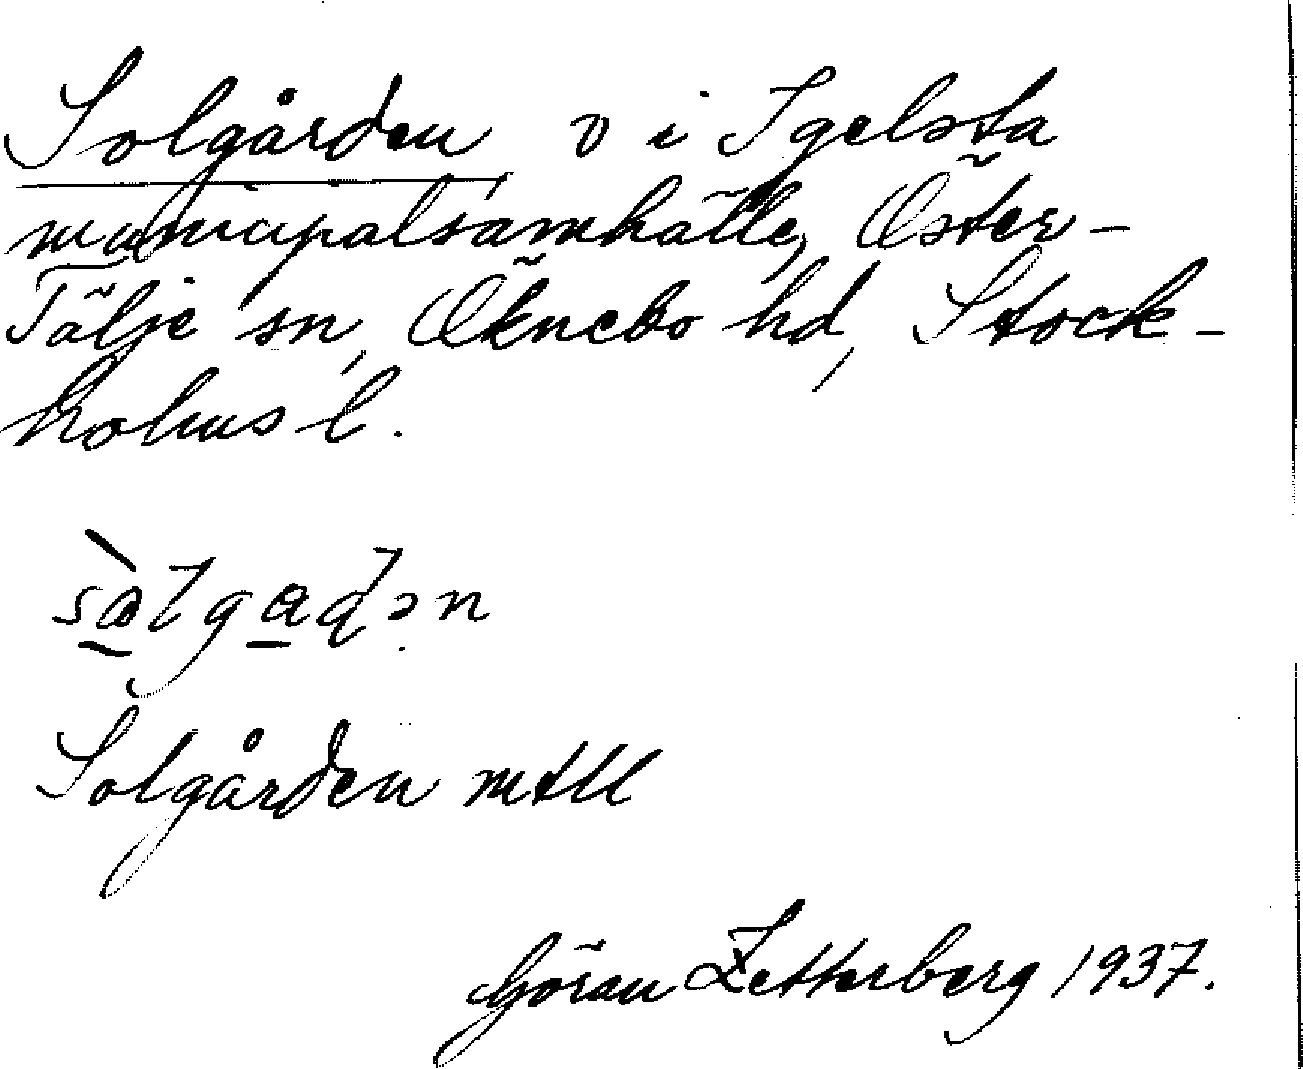 Solgården v i Igelsta
municipalsamhälle, Öster-
Tälje sn, Öknebo hd, Stock-
holms l.
Solgården mtll
Göran Zetterberg 1937.